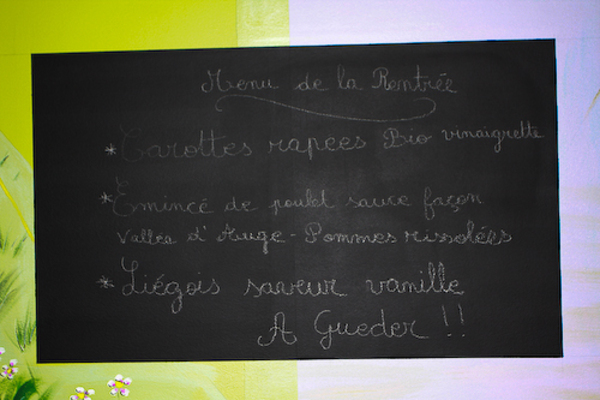 Menu de la Rentrée
* Carottes rapées Bio vinaigrette
* Emincé de poulet sauce façon
Vallée d'Auge - Pommes rissolées
* Liégois saveur vanille
A Gueder !!